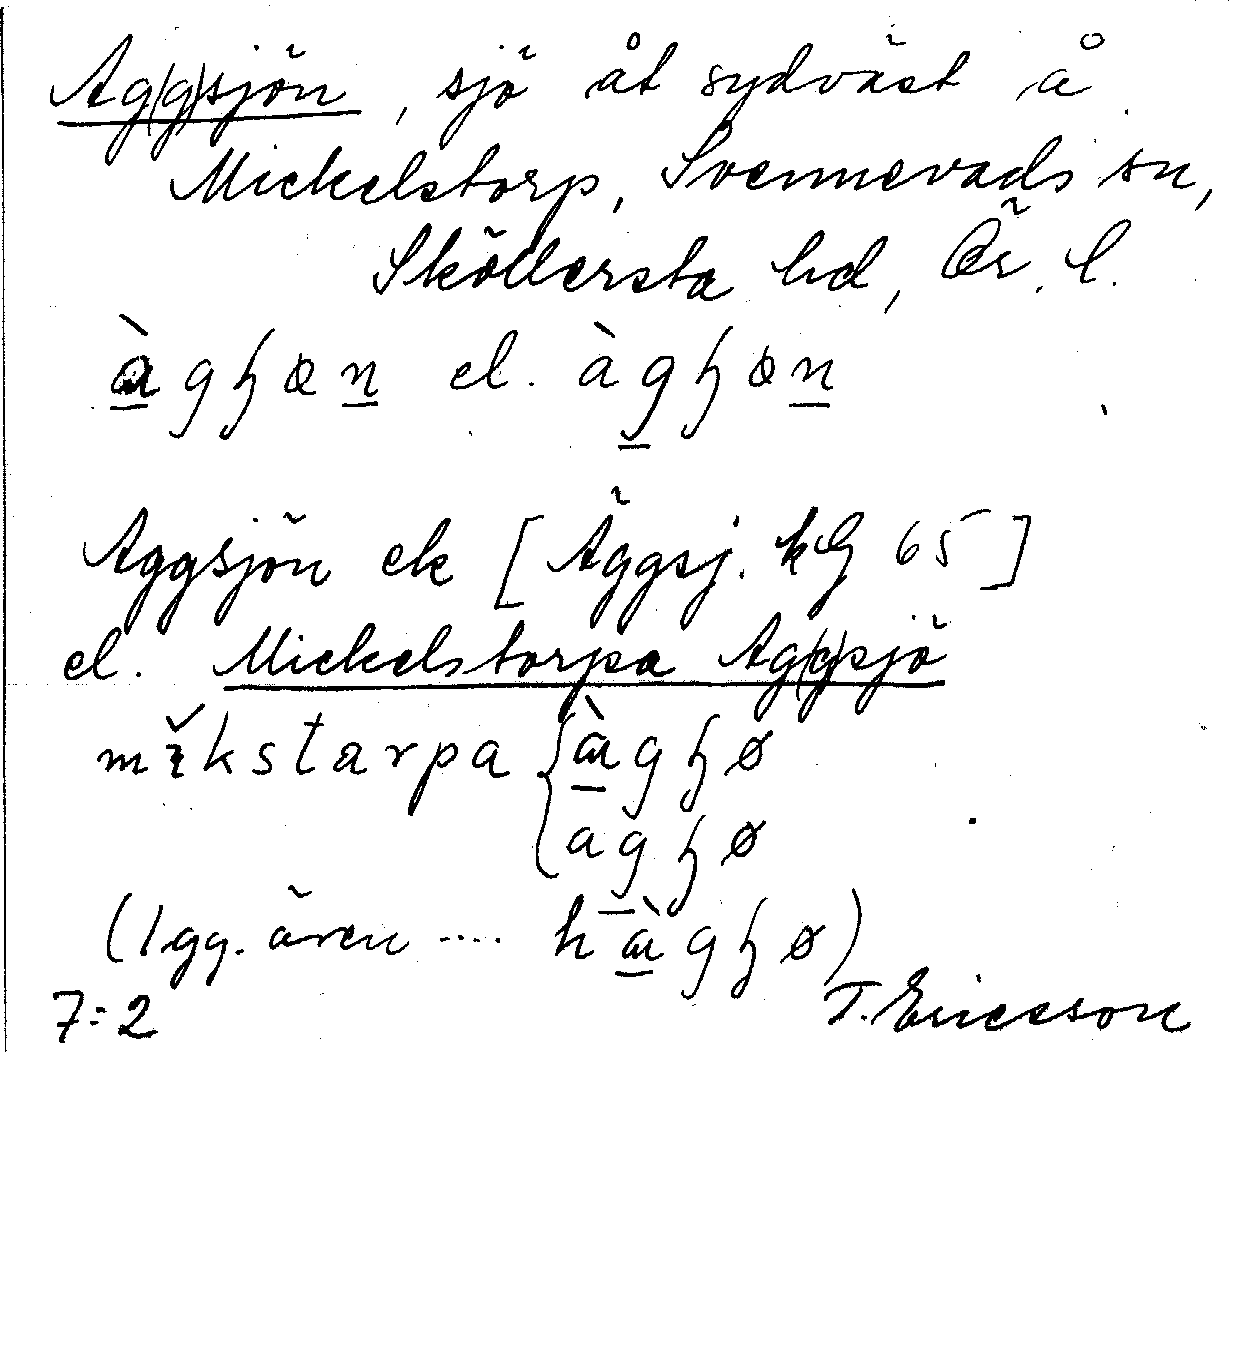 Ag(g)sjön, sjö åt sydväst å
Mickelstorp, Svennevads sn,
Sköllersta hd, Ör. l.
el.
Aggsjön ek [Äggsj. kG 65]
el. Mickelstorpa Ag(g)sjö
mı̆kstarpa { àgɧø
agɧø
(1 gg. även .... hàgɧø)
7:2 T. Ericsson